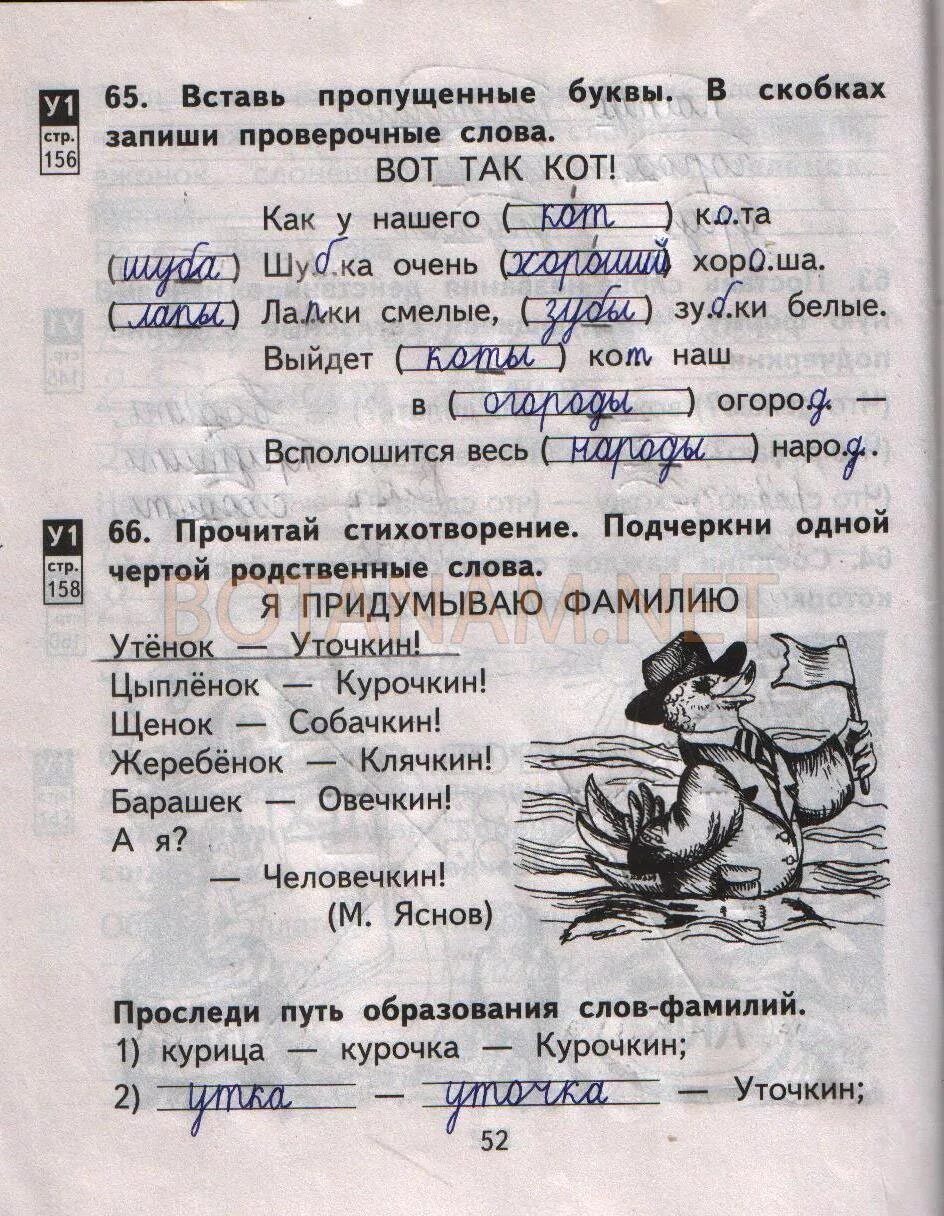 У1
стр.
156
65. Вставь пропущенные буквы. В скобках
запиши проверочные слова.
ВОТ ТАК КОТ!
Как у нашего (кот) к.о.та
(шуба) Шу.б.ка очень (хороший) хоро.ша.
(лапы) Ла.п.ки смелые, (зубы) зу.б.ки белые.
Выйдет (коты) кот наш
в (огороды) огоро.д. —
Всполошится весь (народы) наро.д..
У1
стр.
158
66. Прочитай стихотворение. Подчеркни одной
чертой родственные слова.
BOTANAM.NET
Я ПРИДУМЫВАЮ ФАМИЛИЮ
Утёнок — Уточкин!
Цыплёнок — Курочкин!
Щенок — Собачкин!
Жеребёнок — Клячкин!
Барашек — Овечкин!
А я?
— Человечкин!
(М. Яснов)
Проследи путь образования слов-фамилий.
1) курица — курочка — Курочкин;
2) утка — уточка — Уточкин;
52